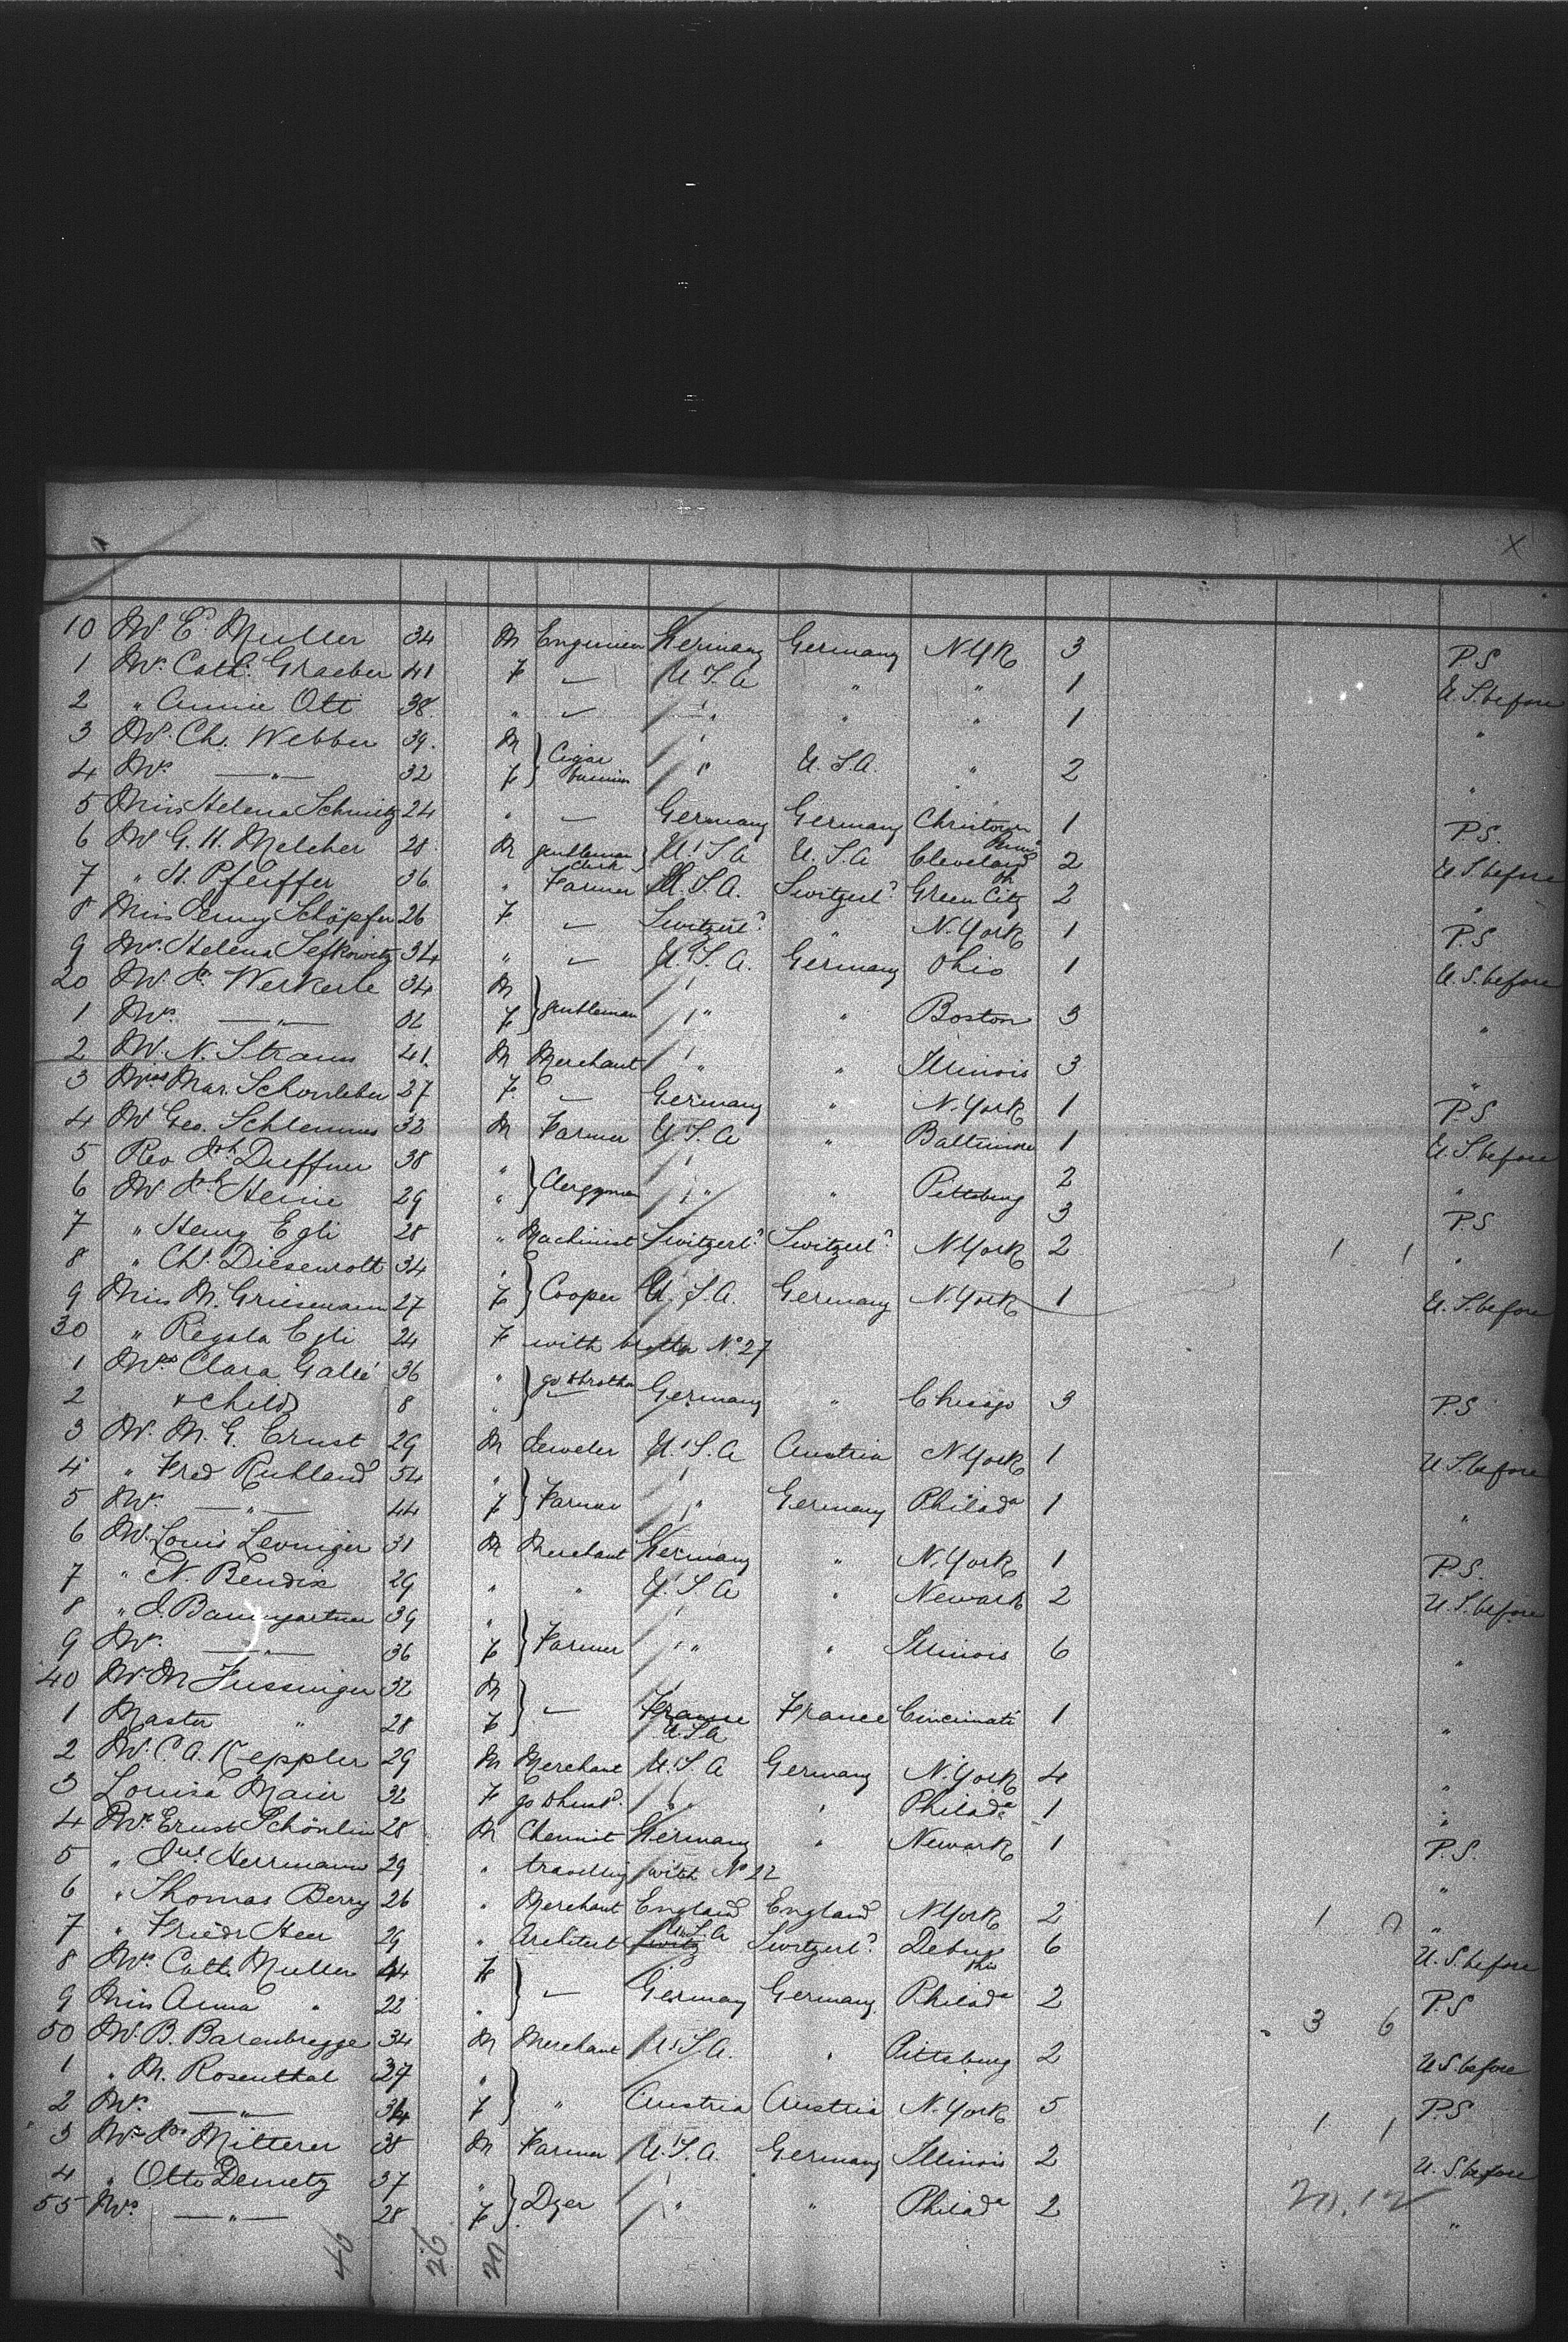 X
10 Mr E. Muller 34 M Engineer Germany Germany N.Yk 3 P.S
1 Mrs Cath. Graeber 41 F — U.S.A " " 1 U.S. before
2 " Annie Ott 38 " — " " " 1 "
3 Mr Ch. Webber 39 M } Cigar "
4 Mrs —"— 32 F } " U.S.A. " 2 "
5 Miss Helena Schmitz 24 " — Germany Germany 1 P.S.
6 Mr G. H. Melcher 28 M gentleman clerk U.S.A U.S.A Cleveland Oh 2 U.S. before
7 " H. Pfeiffer 36 " Farmer U.S.A. Switzerld Green City 2 "
8 Miss Jenny Schöpfer 26 F — Switzerld " N.York 1 P.S
9 Mrs Helena Lefkowitz 34 " — U.S.A. Germany Ohio 1 U.S. before
20 Mr Werkerle 34 M } gentleman
1 Mrs —"— 32 F } " " Boston 3 "
2 Mr N. Straus 41 M Merchant " " Illinois 3 "
3 Miss Mar. Schonleber 27 F — Germany " N.York 1 P.S
4 Mr Geo. Schlemmer 33 M Farmer U.S.A " Baltimore 1 U.S. before
5 Rev Duffner 38 " } Clergyman 2 "
6 Mr Heine 29 " } " " Pittsburg 3 P.S
7 " Henry Egli 28 " Machinist Switzerld Switzerld N.York 2 1 1 "
8 " Ch. Diesenrott 34 " } Cooper
9 Miss M. Griesemann 27 F } U.S.A Germany N.York 1 U.S. before
30 " Regola Egli 24 F with brother No 27
1 Mrs Clara Gallé 36 " } go t brother
2 & child 8 " } Germany " Chicago 3 P.S
3 Mr M. G. Ernst 29 M Jeweler U.S.A Austria N.York 1 U.S. before
4 " Fred Ruhland 54 " } Farmer
5 Mrs —"— 44 F } " Germany Philada 1 "
6 Mr Louis Levinger 31 M Merchant Germany " N.York 1 P.S.
7 " N. Bendix 29 " " U.S.A " Newark 2 U.S. before
8 " J. Baumgartner 39 " } Farmer
9 Mrs —"— 36 F } " " Illinois 6 "
40 Mr M Fussinger 32 M }
1 Master " 28 F } — France U.S.A France Cincinnati 1 "
2 Mr C. A. Keppler 29 M Merchant U.S.A Germany N.York 4 "
3 Louisa Maier 32 F go t husbd " " Philada 1 "
4 Mr Ernst Schönlin 28 M Chemist Germany " Newark 1 P.S.
5 " Jul. Herrmann 29 " travelling with No 22 "
6 " Thomas Berry 26 " Merchant England England N.York 2 1 "
7 " Friedr Heer 29 " Architect Switz U.S.A Switzerld 6 U.S. before
8 Mrs Cath. Muller 44 F }
9 Miss Anna " 22 " } — Germany Germany Philada 2 3 6 P.S
50 Mr B. Barenbregge 34 M Merchant U.S.A. " Pittsburg 2 U.S before
1 " M. Rosenthal 37 " }
2 Mrs —"— 34 F } " Austria Austria N.York 5 1 1 P.S
3 Mr Jos Mitterer 38 M Farmer U.S.A. Germany Illinois 2 U.S. before
4 " Otto Demetz 37 " } Dyer
55 Mrs —"— 28 F } " " Philada 2 "
46 26 20